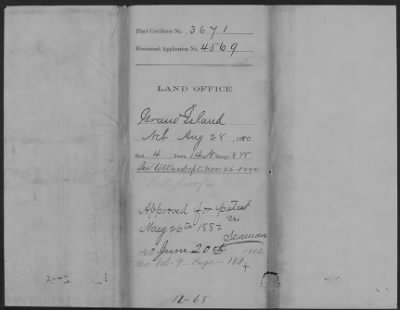 Final Certificate No. 3671
Homestead Application No. 4569
LAND OFFICE
Grand Island
Neb Aug 28, 1880.
Sect. 4 Town. 14 N Range. 8 W
Nov. 26 1880
Approved for patent
May 26th 1882
Seaman
June 20th 1882
Rec Vol. 9 - Page - 188